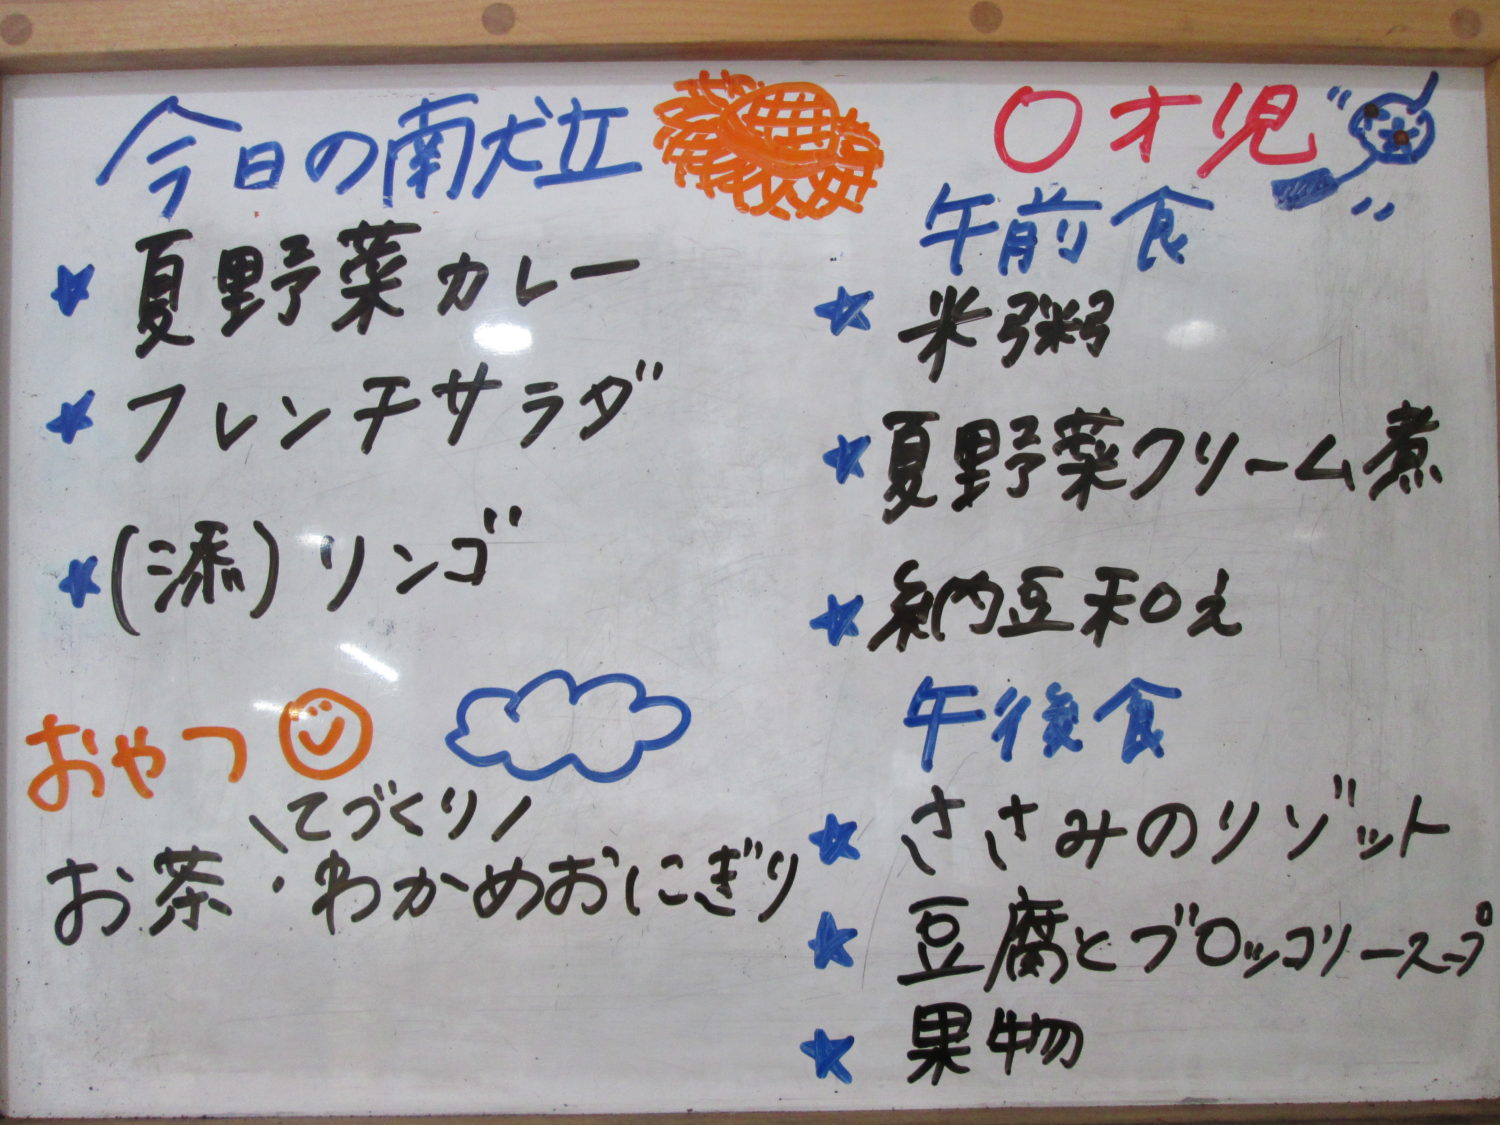 今日の献立
夏野菜カレー
フレンチサラダ
(添)リンゴ
おやつ
てづくり
お茶・わかめおにぎり
0才児
午前食
米粥
夏野菜クリーム煮
納豆和え
午後食
ささみのリゾット
豆腐とブロッコリースープ
果物